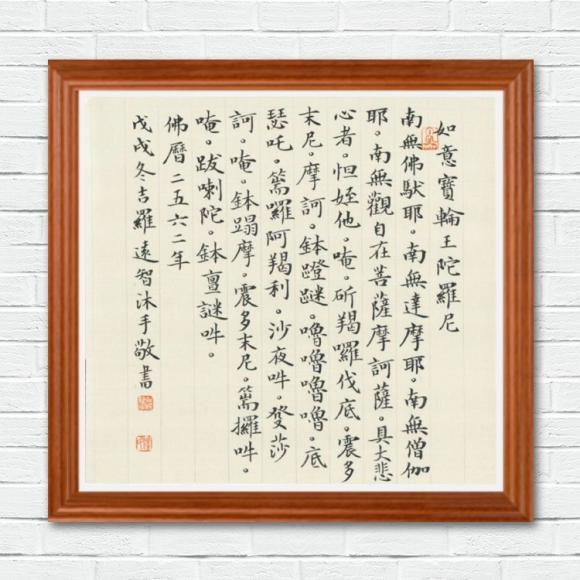 如意寶輪王陀羅尼
南無佛馱耶。南無達摩耶。南無僧伽
耶。南無觀自在菩薩摩訶薩。具大悲
心者。怛姪他。唵。斫羯囉伐底。震多
末尼。摩訶。鉢蹬謎。嚕嚕嚕嚕。底
瑟吒。篅囉阿羯利。沙夜吽。癹莎
訶。唵。鉢蹋摩。震多末尼。篅攞吽。
唵。跋喇陀。鉢亶謎吽。
佛曆二五六二年
戊戌冬吉羅遠智沐手敬書